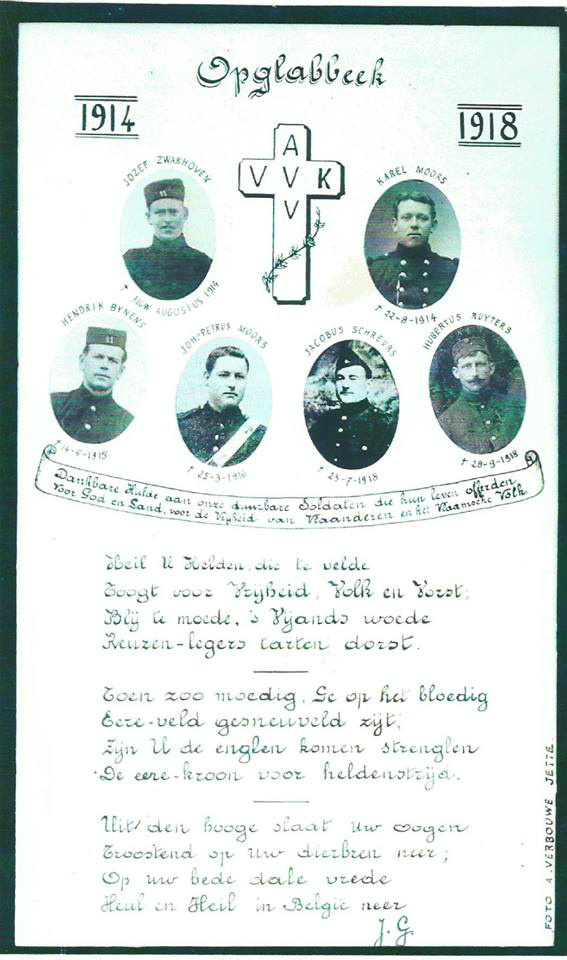 Opglabbeek
1914
1918
A
V V K
V
JOZEF ZWAKHOVEN
† NIEUW AUGUSTUS 1914
KAREL MOORS
† 22-8-1914
HENDRIK BYNENS
† 14-6-1915
JOH.-PETRUS MOORS
† 25-3-1916
JACOBUS SCHREURS
† 23-7-1918
HUBERTUS RUYTERS
† 28-9-1918
Dankbare Hulde aan onze duurbare Soldaten die hun leven offerden
Voor God en Land, voor de Vrijheid van Vlaanderen en het Vlaamsche Volk
Heil U Helden, die te velde
Toogt voor Vrijheid, Volk en Vorst;
Blij te moede, 's Vijands woede
Reuzen-legers tarten dorst.
Toen zoo moedig, Ge op het bloedig
Eere-veld gesneuveld zijt;
Zijn U de englen komen strenglen
De eere-kroon voor heldenstrijd.
Uit den hooge slaat Uw oogen
Troostend op Uw dierbren neer;
Op uw bede dale vrede
Heul en Heil in België neer.
J. G.
FOTO A. VERBOUWE JETTE.